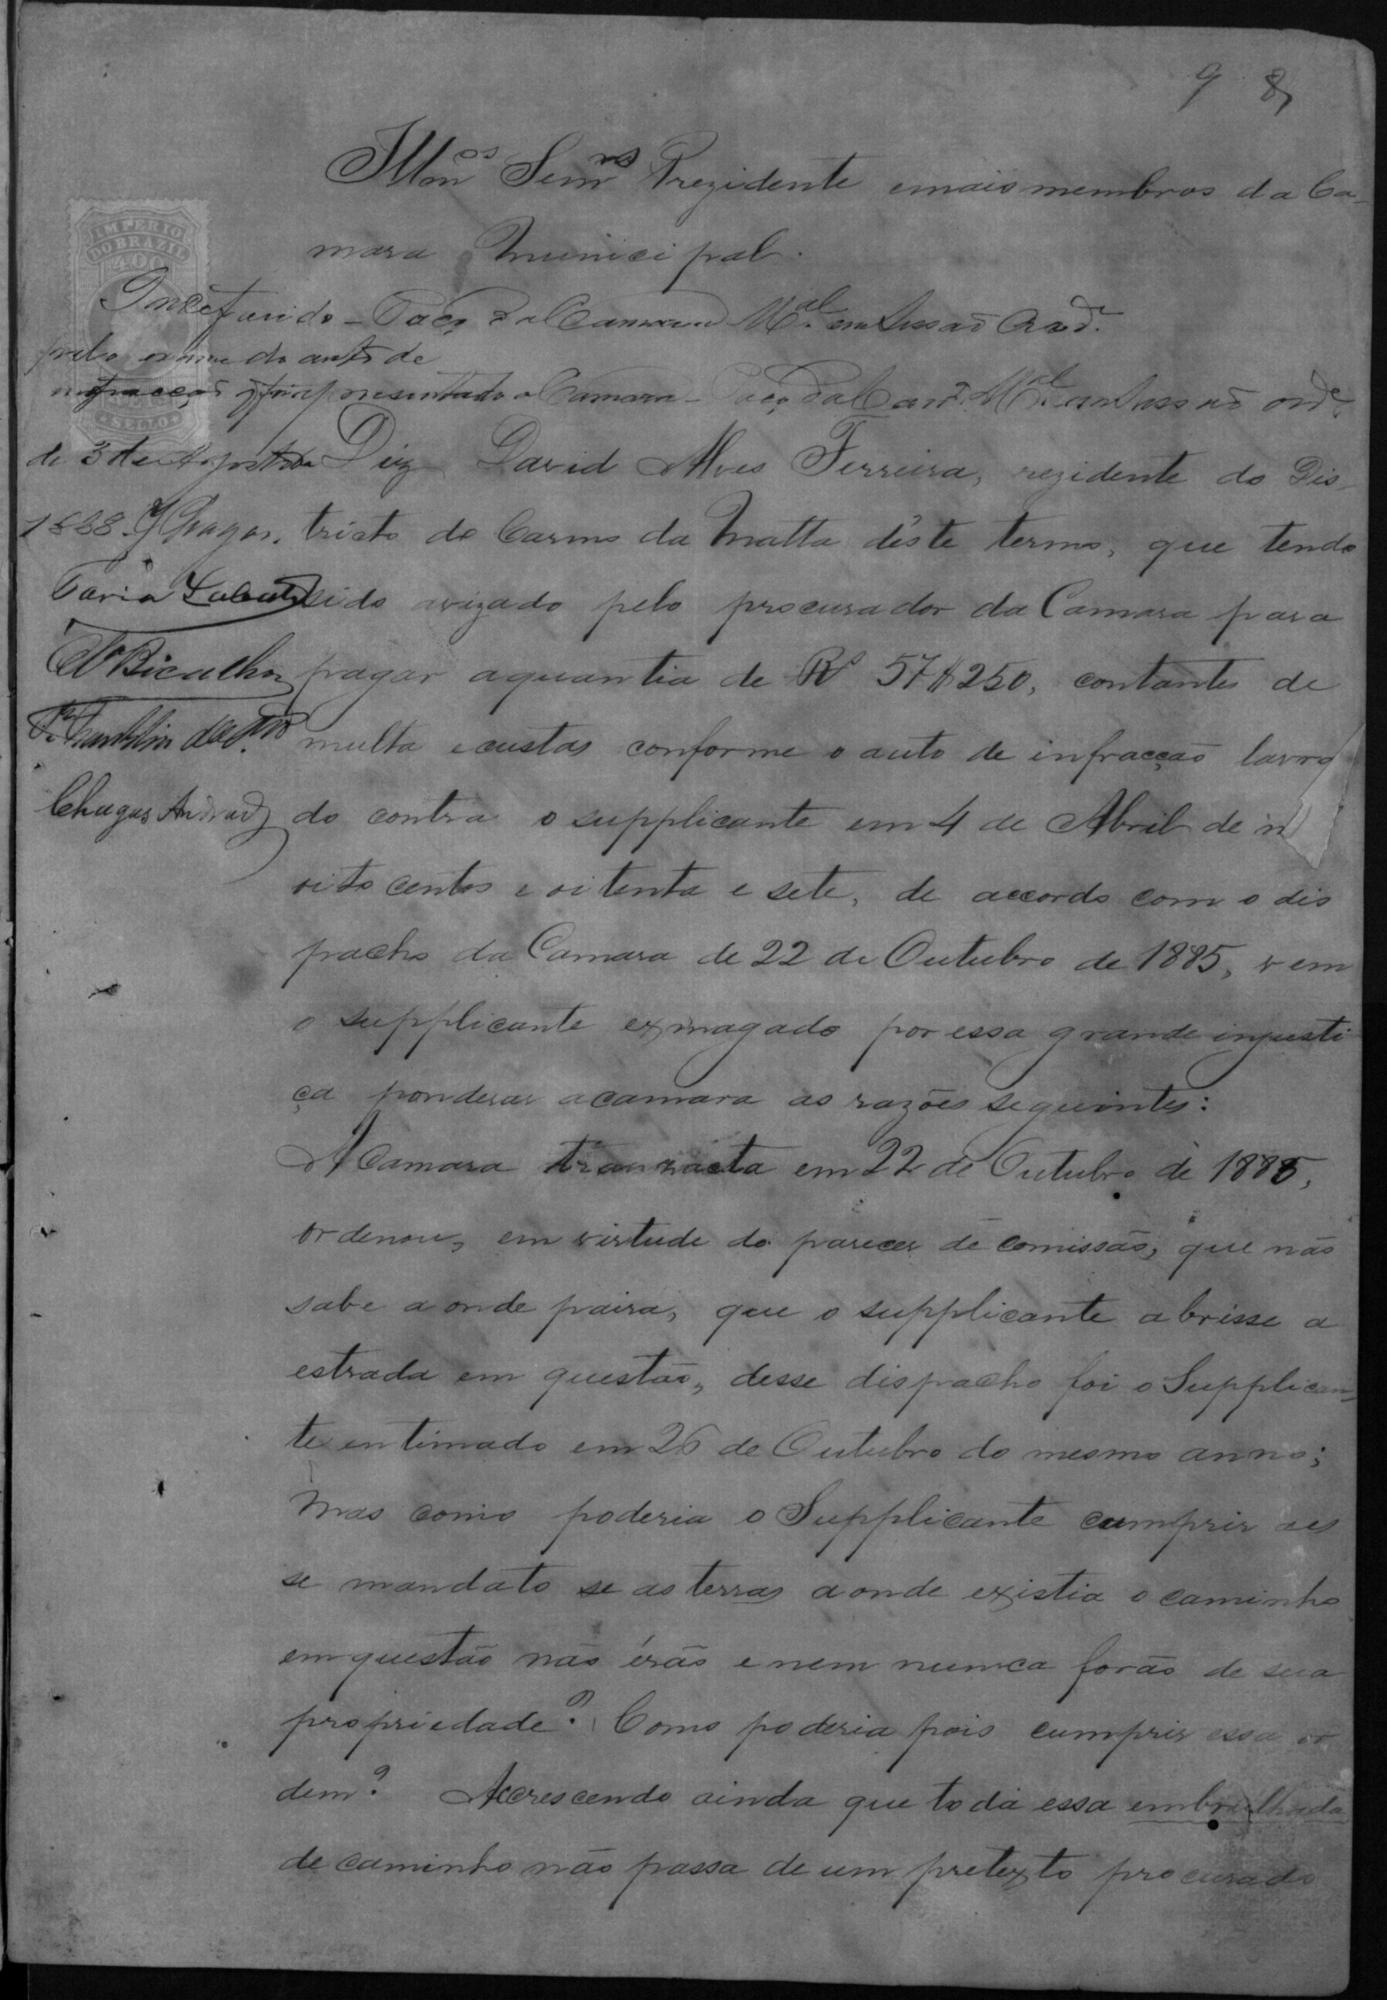 9 8
Illm.os Senr.es Prezidente emais membros da Ca-
mara Municipal.
IMPERIO
DO BRAZIL
400
SELLO
Indeferido - Paço da Camara M.al em Sessaõ Ord.
pelo exame do auto de
infracção apresentado a Camara - Paço da Cam.a M.al em Sessaõ ord.e
de 3 de Agosto de
1888. Chagas.
Faria Lobato
Bicalho
Franklin de
Chagas Andrade
Diz David Alves Ferreira, rezidente do Dis-
tricto do Carmo da Matta dêste termo, que tendo
sido avizado pelo procurador da Camara para
pagar aquantia de Rs 57$250, contante de
multa e custas conforme o auto de infracção lavra
do contra o supplicante em 4 de Abril de
oito centos e oitenta e sete, de accordo com o dis
pacho da Camara de 22 de Outubro de 1885, vem
o supplicante exmagado por essa grande injusti
ça ponderar acamara as razões seguintes:
A Camara tranzacta em 22 de Outubro de 1885,
ordenou, em virtude do parecer de comissão, que não
sabe a onde paira, que o supplicante abrisse a
estrada em questão, desse dispacho foi o Supplican-
te entimado em 26 de Outubro do mesmo anno;
Mas como poderia o Supplicante cumprir des
se mandato se as terras aonde existia o caminho
em questão não érão e nem nunca forão de sua
propriedade? Como poderia pois cumprir essa or
dem? Accrescendo ainda que toda essa embrulhada
de caminho não passa de um pretexto procurado